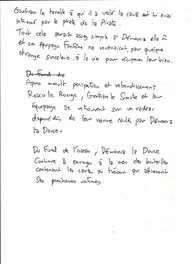 Gontran le terrible à qui il a volé la carte est lui aussi
pourchassé par le pirate de la Pirate.
Tout cela serait assez simple si Démona elle
et son équipage Fantôme ne revenaient, par quelque
étrange sorcellerie, à la vie pour récupérer leur bien.
Du Fond de
Après moult péripéties et rebondissements
Rosco le Rouge, Gontran le Sinistre et leur
équipage se retrouvent sur un radeau
dépouillés de leur navire coulé par Démona
la Douce.
Du Fond de l'océan, Démona la Douce
Continue à envoyer à la mer des bouteilles
contenant les cartes au trésor qui attireront
ses prochaines victimes.